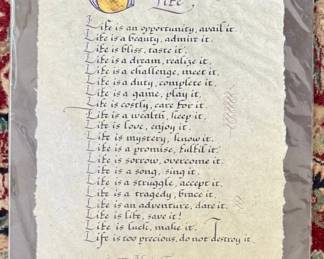 Life
Life is an opportunity, avail it.
Life is a beauty, admire it.
Life is bliss, taste it.
Life is a dream, realize it.
Life is a challenge, meet it.
Life is a duty, complete it.
Life is a game, play it.
Life is costly, care for it.
Life is a wealth, keep it.
Life is love, enjoy it.
Life is mystery, know it.
Life is a promise, fulfil it.
Life is sorrow, overcome it.
Life is a song, sing it.
Life is a struggle, accept it.
Life is a tragedy, brace it.
Life is an adventure, dare it.
Life is life, save it!
Life is luck, make it.
Life is too precious, do not destroy it.